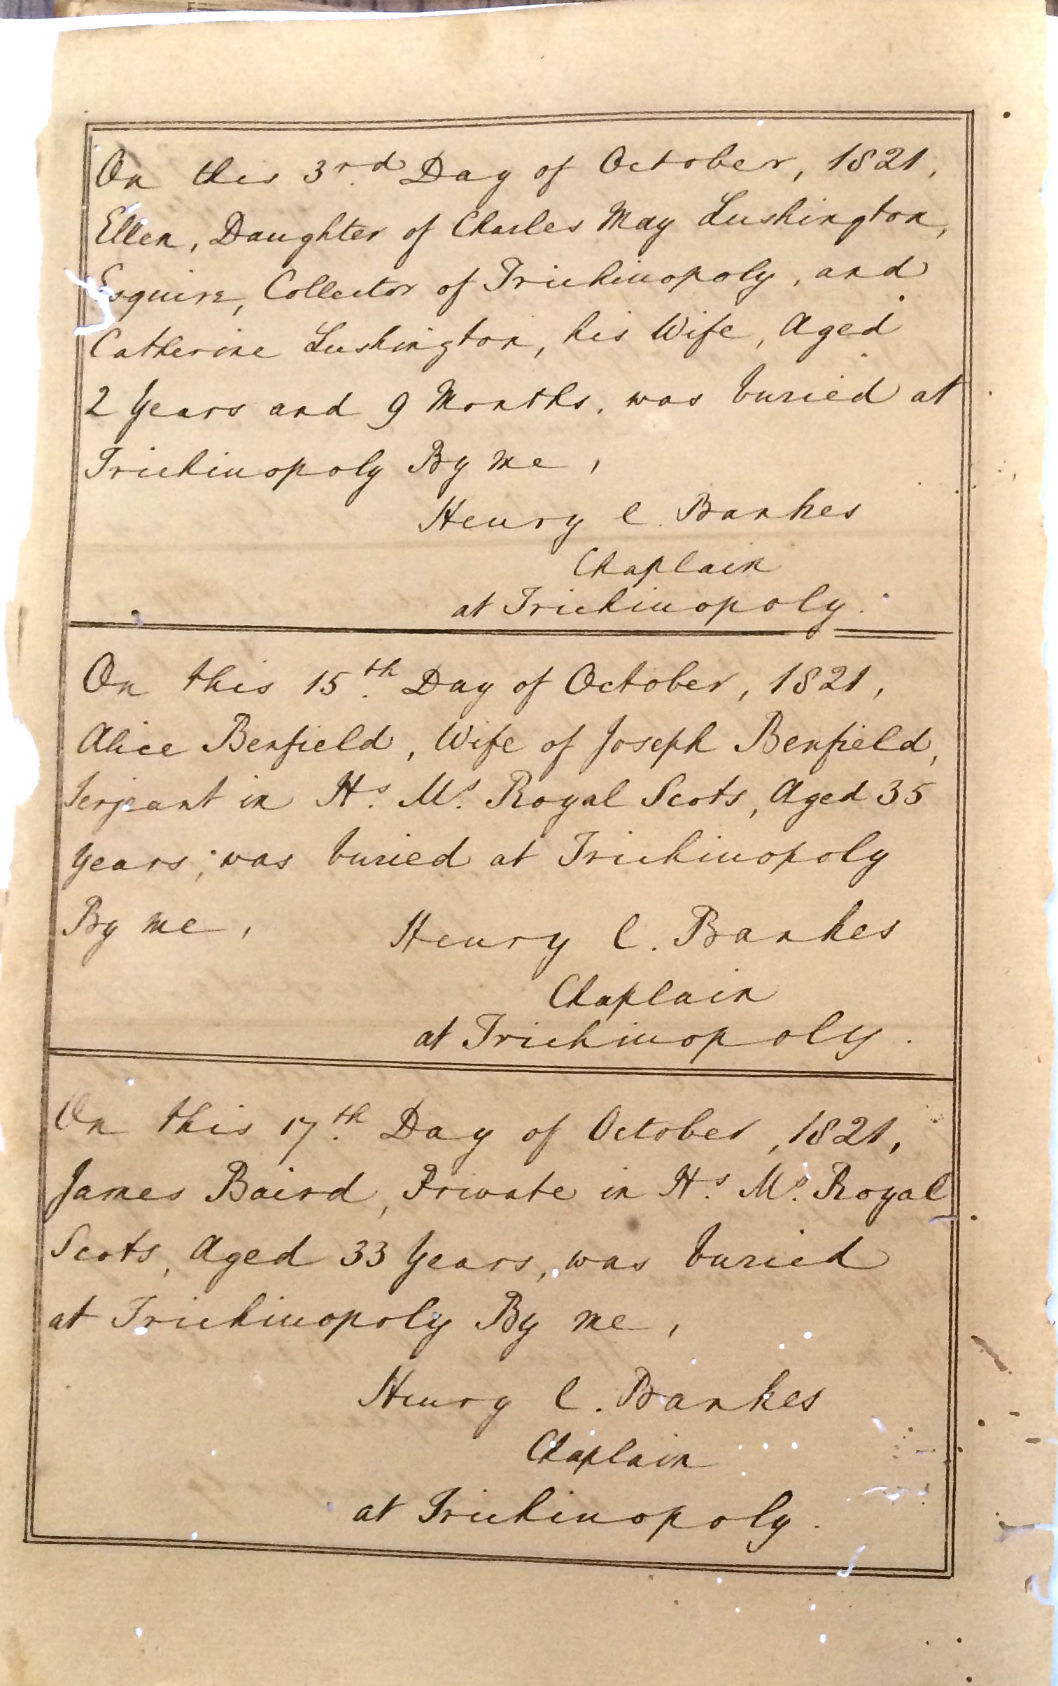 On this 3rd Day of October, 1821,
Ellen, Daughter of Charles May Lushington,
Esquire, Collector of Trichinopoly, and
Catherine Lushington, his Wife, Aged
2 Years and 9 Months, was buried at
Trichinopoly By me,
Henry C. Bankes
Chaplain
at Trichinopoly.
On this 15th Day of October, 1821,
Alice Benfield, Wife of Joseph Benfield,
Serjeant in Hs. Ms. Royal Scots, Aged 35
Years, was buried at Trichinopoly
By me,
Henry C. Bankes
Chaplain
at Trichinopoly.
On this 17th Day of October, 1821,
James Baird, Private in Hs. Ms. Royal
Scots, Aged 33 Years, was buried
at Trichinopoly By me,
Henry C. Bankes
Chaplain
at Trichinopoly.